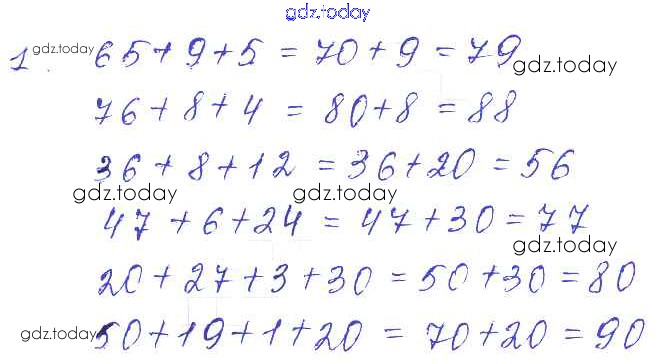 gdz.today
1. gdz.today 65+9+5 = 70+9 = 79
gdz.today
76+8+4 = 80+8 = 88
36+8+12 = 36+20 = 56
gdz.today gdz.today
47+6+24 = 47+30 = 77
gdz.today
20+27+3+30 = 50+30 = 80
gdz.today 50+19+1+20 = 70+20 = 90